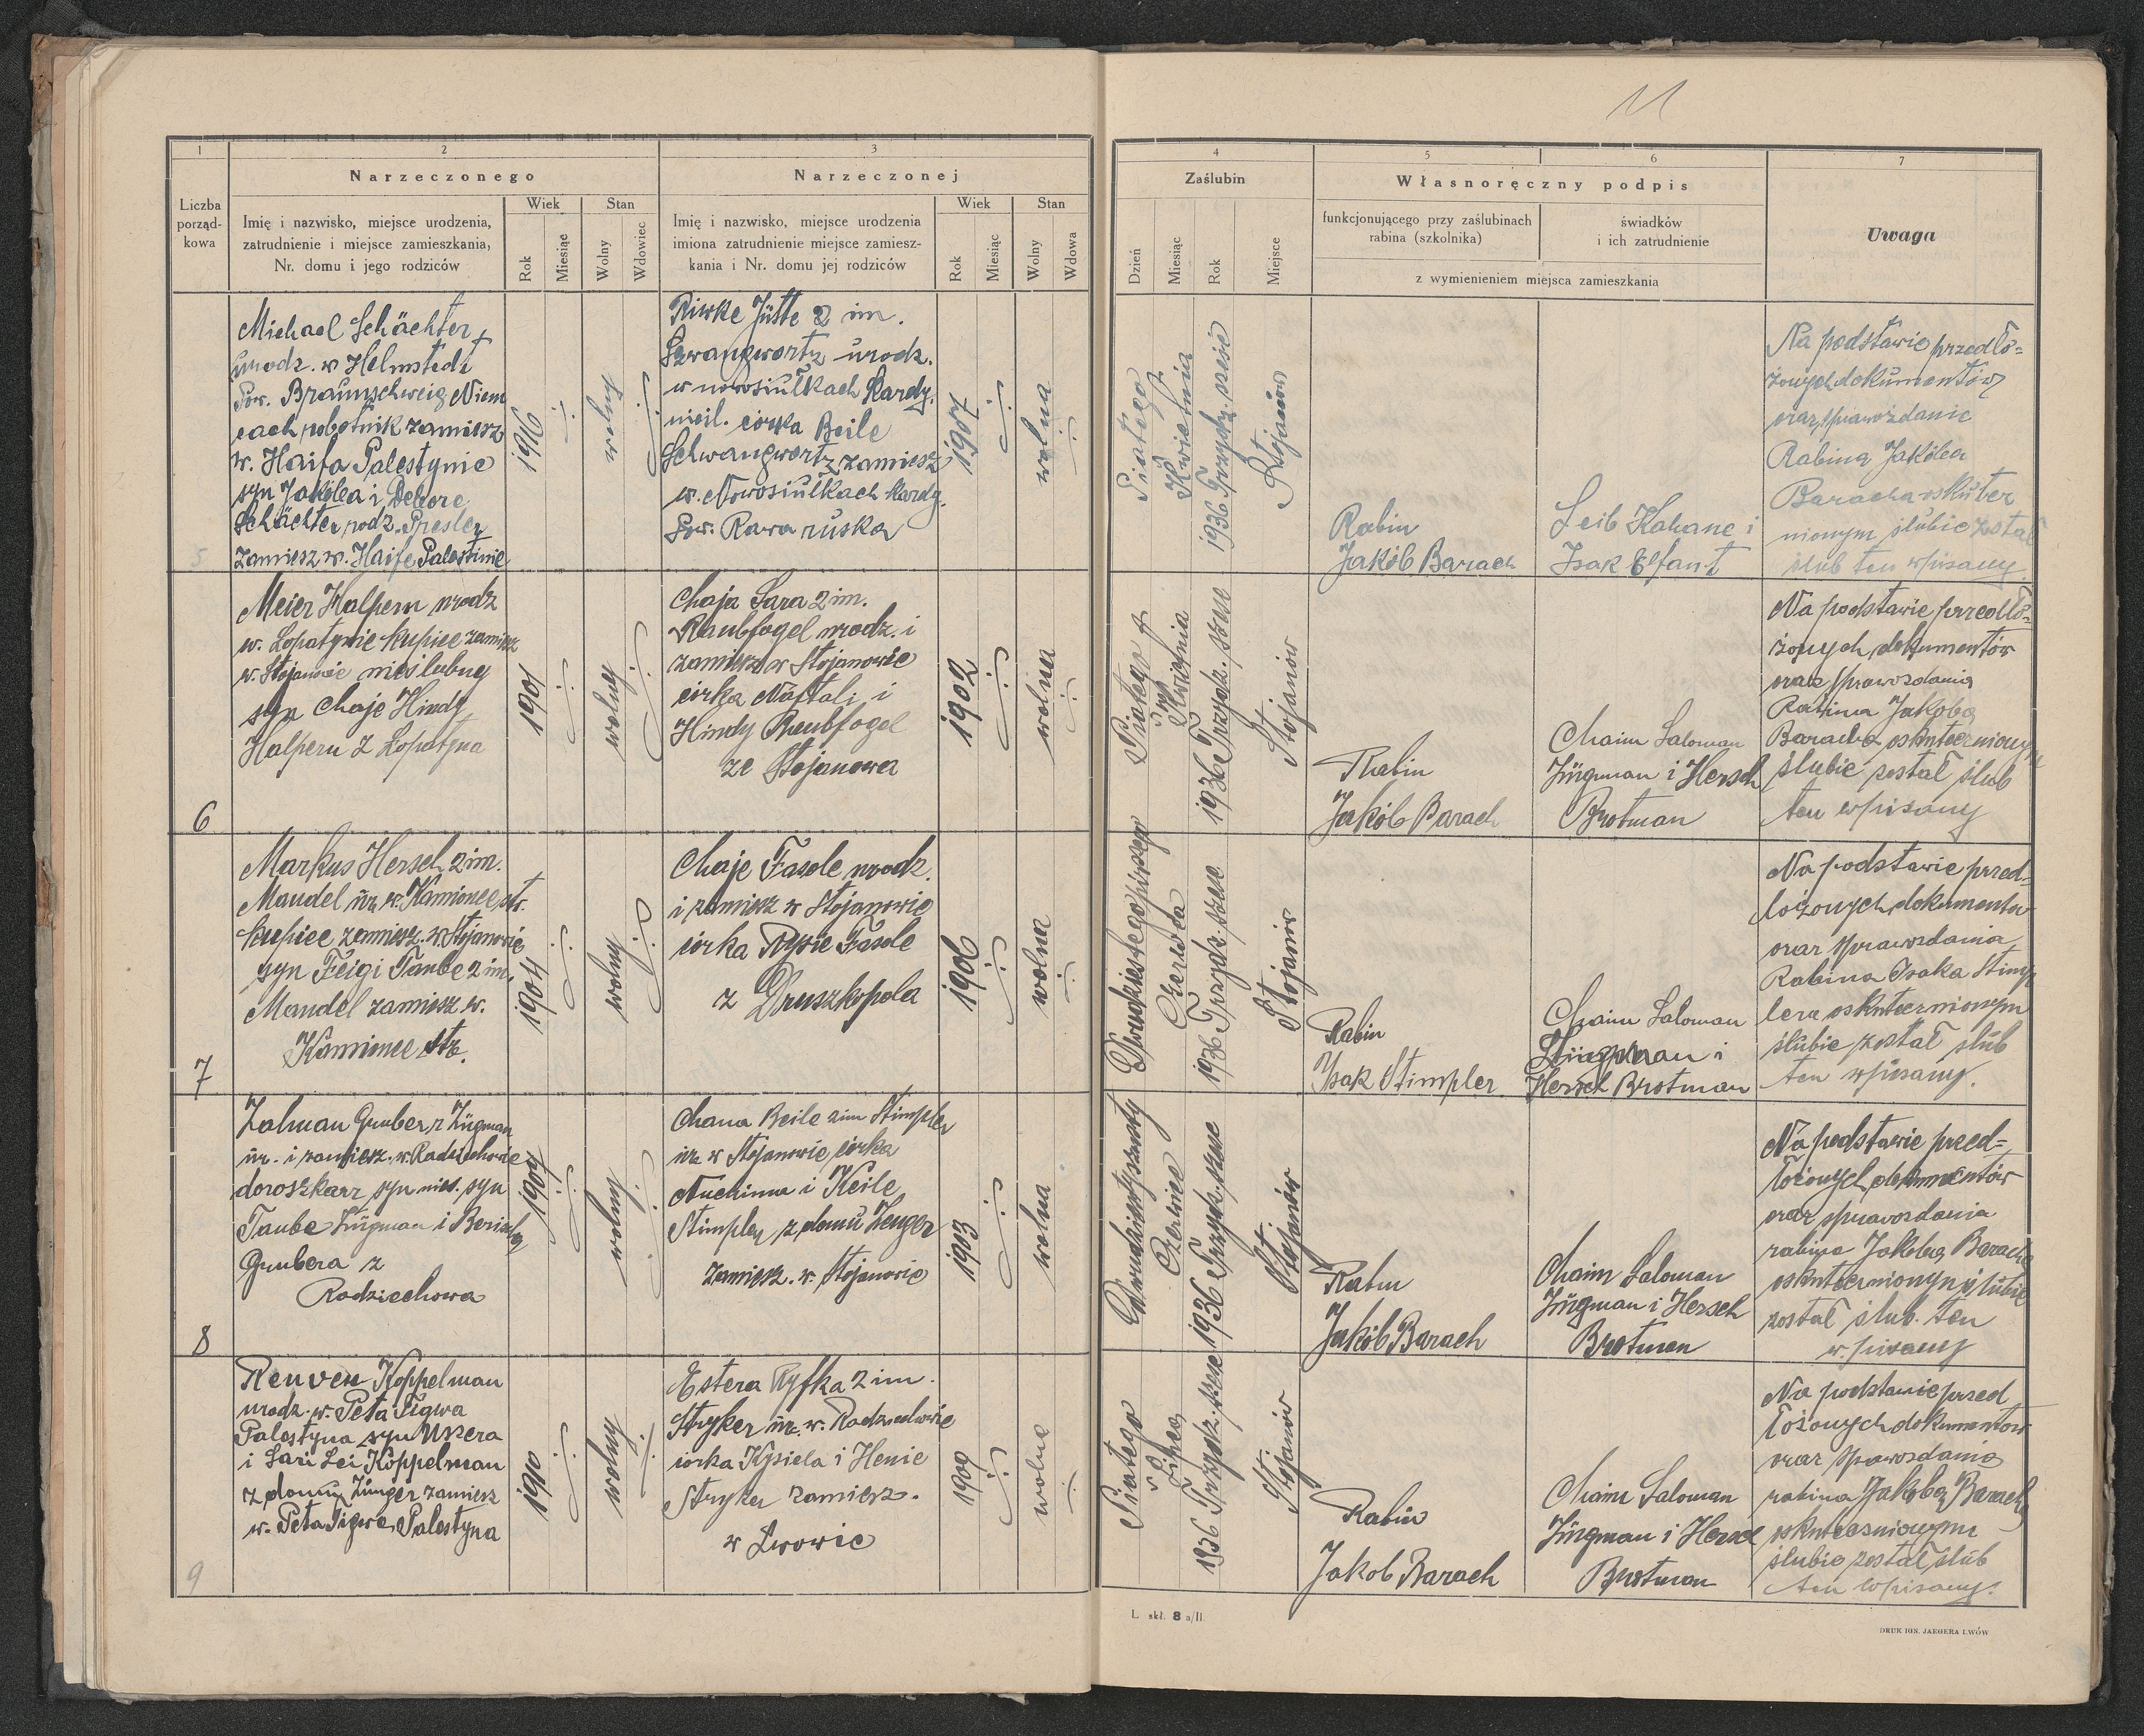 11
1
2
3
4
5
6
7
Liczba
porząd-
kowa
Narzeczonego
Imię i nazwisko, miejsce urodzenia,
zatrudnienie i miejsce zamieszkania,
Nr. domu i jego rodziców
Wiek
Stan
Rok
Miesiąc
Wolny
Wdowiec
Narzeczonej
Imię i nazwisko, miejsce urodzenia
imiona zatrudnienie miejsce zamiesz-
kania i Nr. domu jej rodziców
Wiek
Stan
Rok
Miesiąc
Wolny
Wdowa
Zaślubin
Dzień
Miesiąc
Rok
Miejsce
Własnoręczny podpis
funkcjonującego przy zaślubinach
rabina (szkolnika)
świadków
i ich zatrudnienie
z wymienieniem miejsca zamieszkania
Uwaga
5
Michael Schächter
urodz. w Helmstedt
Pow. Braunschweig Niem
cach robotnik zamiesz
w. Haifa Palestynie
syn Jakóba i Debore
Schächter rodz. Presler
zamiesz w. Haife Palestinie
1916
wolny
Riwke Jütte 2 im.
Szwangwortz urodz.
w nowosiułkach Kardy.
nieil. córka Beile
Schwangwortz zamiesz
w. Nowosiułkach Kardy.
Pow. Rawa ruska
1907
wolna
Piatego
Kwietnia
1936 Trzydz. sześć
Stojanów
Rabin
Jakób Barach
Leib Kahane i
Isak Elfant
Na podstawie przedło=
żonych dokumentów
oraz sprawozdanie
Rabina Jakóba
Baracha oskuter
nionym ślubie został
ślub ten wpisany
6
Meier Halpern urodz
w. Łopatynie kupiec zamiesz
w. Stojanowie nieślubny
syn Chaje Hindy
Halpern z Łopatyna
1901
wolny
Chaja Sara 2 im.
Raubfogel urodz. i
zamiesz w Stojanowie
córka Naftali i
Hindy Raubfogel
ze Stojanowa
1902
wolna
Piatego
Kwietnia
1936 Trzydz. szesc
Stojanów
Rabin
Jakób Barach
Chaim Saloman
Jüngman i Hersch
Brotman
Na podstawie przedło=
żonych dokumentów
oraz sprawozdania
Rabina Jakoba
Baracha oskutecznionym
ślubie został ślub
ten wpisany
7
Markus Hersch 2 im.
Mandel ur. w. Kamionce str.
kupiec zamiesz. w Stojanowie,
syn Feigi Taube 2 im.
Mandel zamiesz w.
Kamionce Str.
1904
wolny
Chaje Fasole urodz.
i zamiesz w Stojanowie
córka Rysie Fasole
z Druszkopola
1906
wolna
Dwudziestego pierwszego
Czerwca
1936 Trzydz. szesc
Stojanów
Rabin
Isak Stimpler
Chaim Saloman
Jüngman i
Hersch Brotman
Na podstawie przed=
łożonych dokumentów
oraz sprawozdania
Rabina Isaka Stimp
lera oskutecznionym
ślubie został ślub
ten wpisany.
8
Zalman Gruber r Jügman
ur. i zamiesz. w. Radziechowie
doroszkarz syn nieś. syn
Taube Jügman i Berisch
Grubera z
Radziechowa
1904
wolny
Chana Beile 2 im Stimpler
ur. w Stojanowie córka
Nuchima i Keile
Stimpler z domu Zenger
zamiesz. w. Stojanowie
1903
wolna
Czerwiec
1936 Trzydz. szesc
Stojanów
Rabin
Jakób Barach
Chaim Saloman
Jüngman i Hersch
Brotman
Na podstawie przed=
łożonych dokumentów
oraz sprawozdania
rabina Jakoba Baracha
oskutecznionym ślubie
został ślub ten
wpisany
9
Reuven Koppelman
urodz. w. Peta Tigwa
Palestyna syn Uszera
i Sari Lei Koppelman
z domu Zünger zamiesz
w. Peta Tigwa Palestyna
1910
wolny
Estera Ryfka 2 im.
Stryker ur. w. Radziechowie
córka Kysiela i Henie
Stryker zamiesz.
w Lwowie
1909
wolna
Piatego
Lipca
1936 Trzydz. szesc
Stojanów
Rabin
Jakob Barach
Chaim Saloman
Jüngman i Hersch
Brotman
Na podstawie przed
łożonych dokumentów
oraz sprawozdania
rabina Jakoba Baracha
oskutecznionym
ślubie został ślub
ten wpisany.
L. skł. 8 a/II.
DRUK IGN. JAEGERA LWÓW